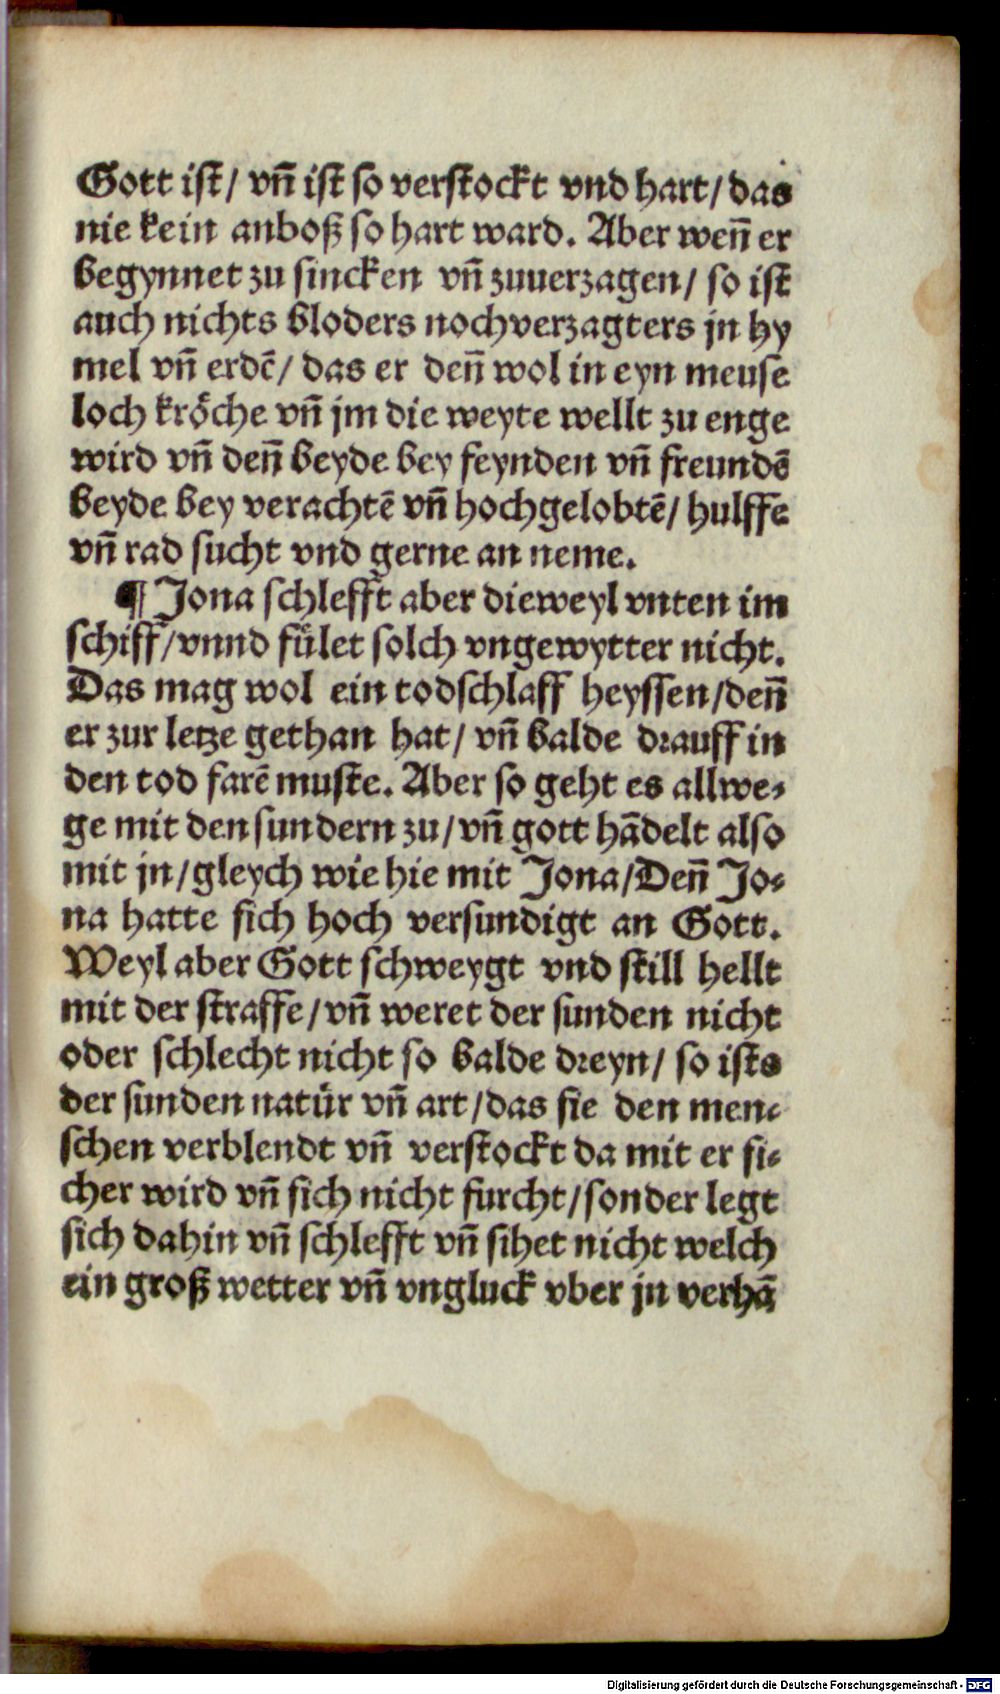 Gott ist/ vñ ist so verstockt vnd hart/ das
nie kein anboß so hart ward. Aber weñ er
begynnet zu sincken vñ zuuerzagen/ so ist
auch nichts bloders noch verzagters jn hy
mel vñ erdē/ das er deñ wol in eyn meuse
loch kröche vñ jm die weyte wellt zu enge
wird vñ deñ beyde bey feynden vñ freundē
beyde bey verachtē vñ hochgelobtē/ hulffe
vñ rad sucht vnd gerne an neme.
¶ Jona schlefft aber dieweyl vnten im
schiff/ vnnd fület solch vngewytter nicht.
Das mag wol ein todschlaff heyssen/ deñ
er zur letze gethan hat/ vñ balde drauff in
den tod farē muste. Aber so geht es allwe-
ge mit den sundern zu/ vñ gott hādelt also
mit jn/ gleych wie hie mit Jona/ Deñ Jo-
na hatte sich hoch versundigt an Gott.
Weyl aber Gott schweygt vnd still hellt
mit der straffe/ vñ weret der sunden nicht
oder schlecht nicht so balde dreyn/ so ists
der sunden natür vñ art/ das sie den men-
schen verblendt vñ verstockt da mit er si-
cher wird vñ sich nicht furcht/ sonder legt
sich dahin vñ schlefft vñ sihet nicht welch
ein groß wetter vñ vngluck vber jn verhā
Digitalisierung gefördert durch die Deutsche Forschungsgemeinschaft - DFG